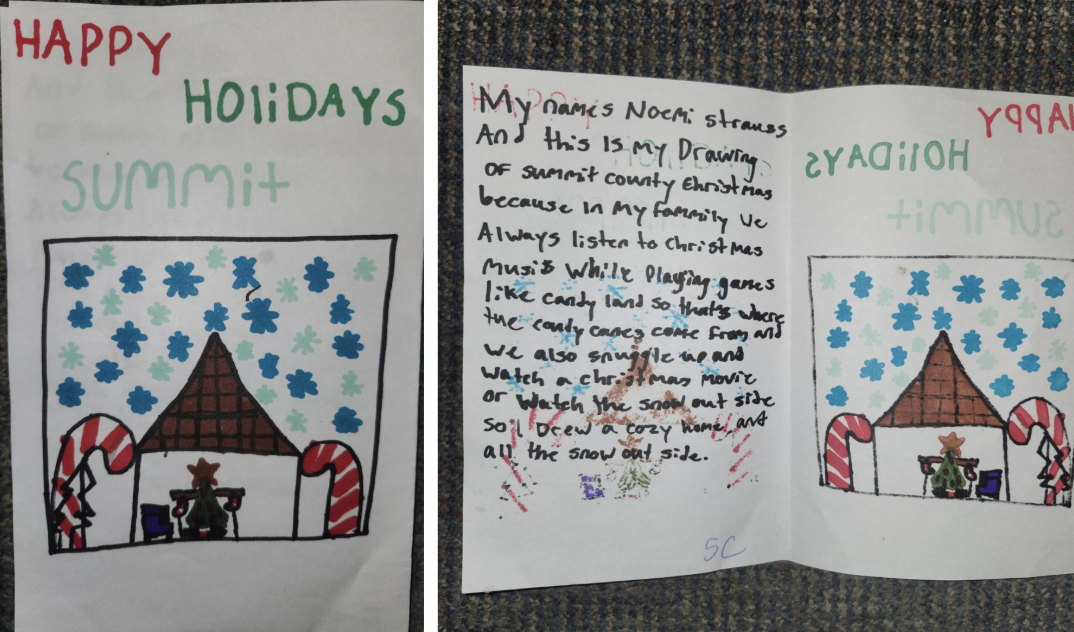 HAPPY
HOliDAYS
SUMMit
My names Noemi Strauss
And this Is my Drawing
OF summit county Christmas
because in My fammily we
Always listen to Christmas
Musis while Playing games
like candy land so that's where
the candy canes come from and
we also snuggle up and
watch a christmas movie
or watch the snow out side
so I Drew a cozy home and
all the snow out side.
SC
HAPPY
HOliDAYS
SUMMit